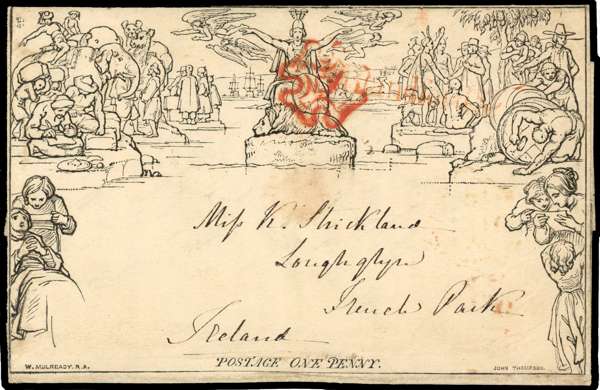 Miss K. Strickland
Loughglyn
French Park
Ireland
POSTAGE ONE PENNY.
W. MULREADY. R.A.
JOHN THOMPSON.